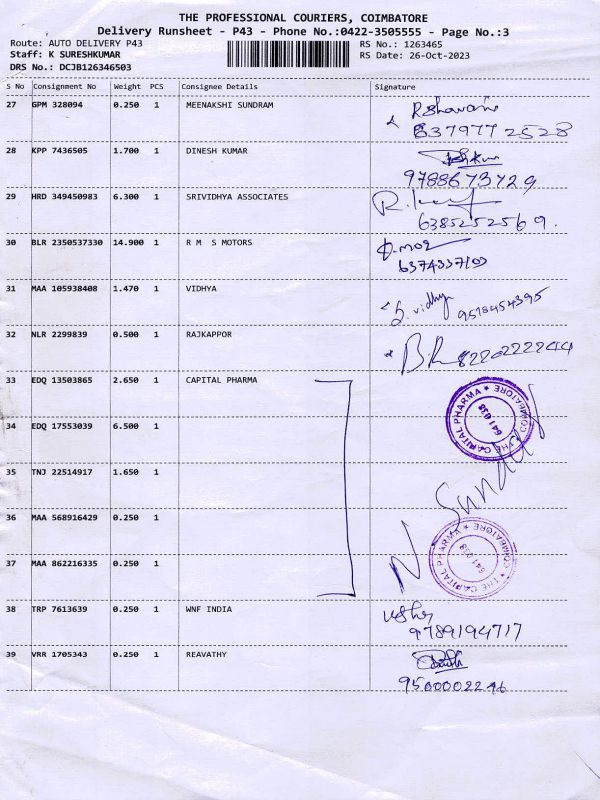 THE PROFESSIONAL COURIERS, COIMBATORE
Delivery Runsheet - P43 - Phone No.:0422-3505555 - Page No.:3
Route: AUTO DELIVERY P43 RS No.: 1263465
Staff: K SURESHKUMAR RS Date: 26-Oct-2023
DRS No.: DCJB126346503
S No Consignment No Weight PCS Consignee Details Signature
27 GPM 328094 0.250 1 MEENAKSHI SUNDRAM
6379772528
28 KPP 7436505 1.700 1 DINESH KUMAR
9788673729
29 HRD 349450983 6.300 1 SRIVIDHYA ASSOCIATES
6385252569.
30 BLR 2350537330 14.900 1 R M S MOTORS
31 MAA 105938408 1.470 1 VIDHYA S. vidhya
9578454395
32 NLR 2299839 0.500 1 RAJKAPPOR
8220222244
33 EDQ 13503865 2.650 1 CAPITAL PHARMA
THE CAPITAL PHARMA * COIMBATORE * 641 038
34 EDQ 17553039 6.500 1
35 TNJ 22514917 1.650 1
36 MAA 568916429 0.250 1
N
37 MAA 862216335 0.250 1
THE CAPITAL PHARMA * COIMBATORE * 641 038
38 TRP 7613639 0.250 1 WNF INDIA
9789194717
39 VRR 1705343 0.250 1 REAVATHY